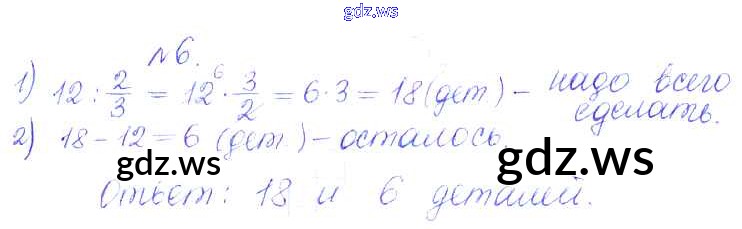 gdz.ws
№6.
1) 12 : 2/3 = 12 6 · 3/2 = 6·3 = 18 (дет.) – надо всего сделать.
2) 18 – 12 = 6 (дет.) – осталось.
gdz.ws gdz.ws
Ответ: 18 и 6 деталей.